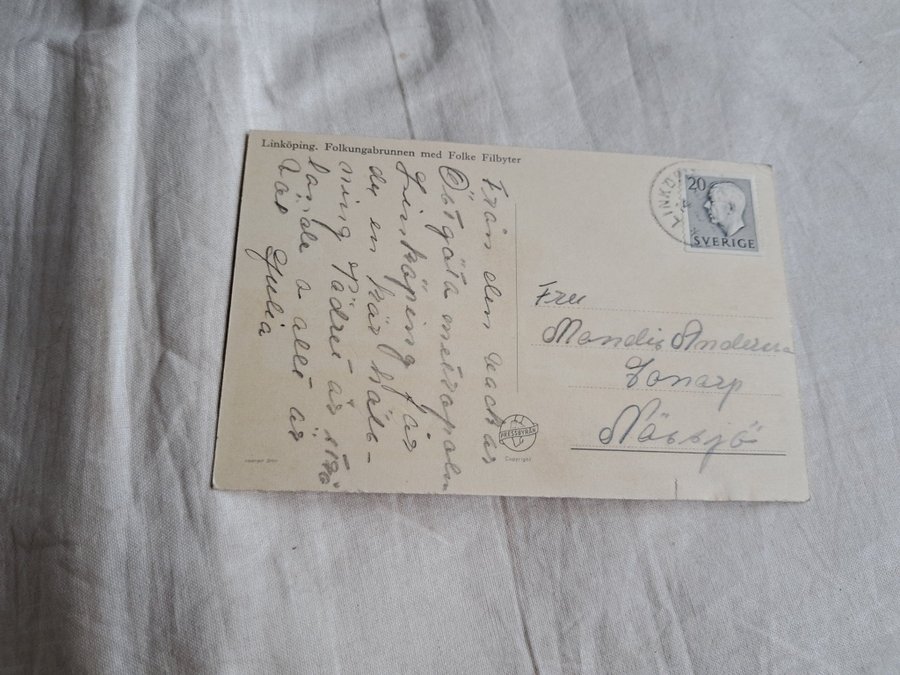 Linköping. Folkungabrunnen med Folke Filbyter
Från den vackra
Östgöta metropolen
Linköping får
du en kär häls-
ning Vädret är strå
lande o allt är
bra Julia
LINKÖ
20
SVERIGE
Fru
Mandis Anderson
Tonarp
Nässjö
PRESSBYRÅN
Copyright